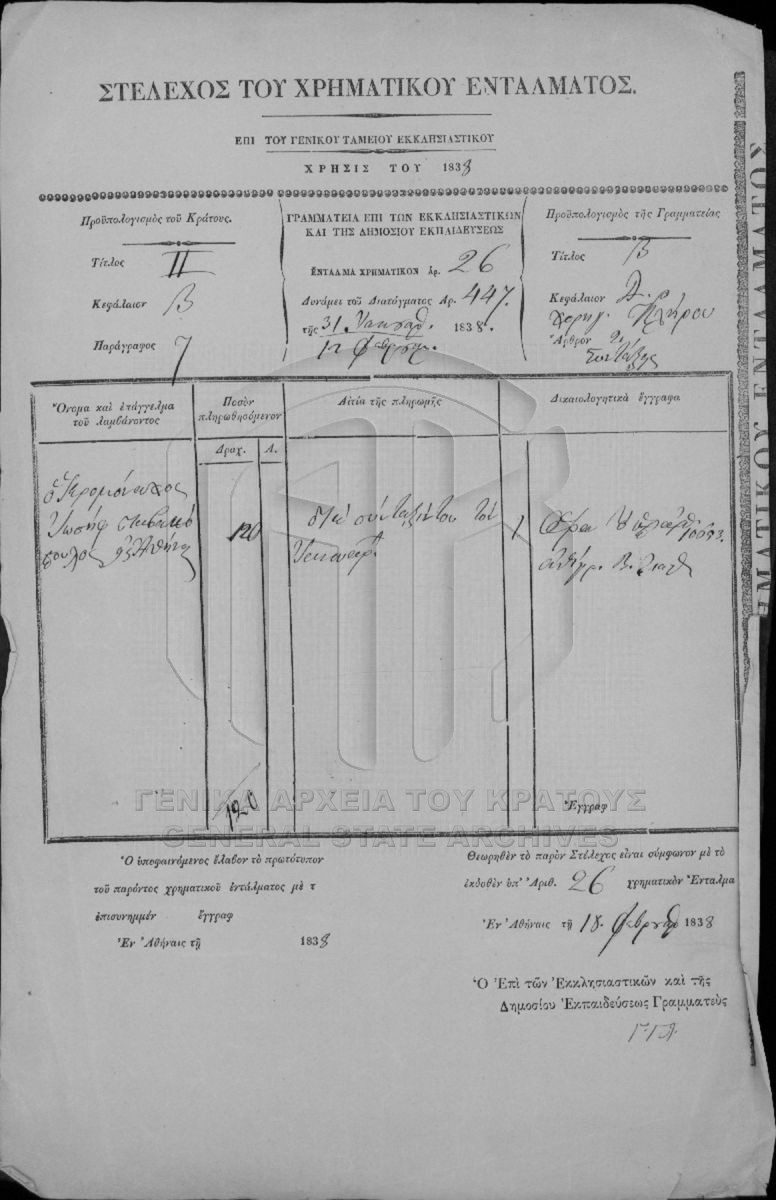 ΣΤΕΛΕΧΟΣ ΤΟΥ ΧΡΗΜΑΤΙΚΟΥ ΕΝΤΑΛΜΑΤΟΣ.
ΕΠΙ ΤΟΥ ΓΕΝΙΚΟΥ ΤΑΜΕΙΟΥ ΕΚΚΛΗΣΙΑΣΤΙΚΟΥ
ΧΡΗΣΙΣ ΤΟΥ 1838
Προϋπολογισμὸς τοῦ Κράτους.
Τίτλος II
Κεφάλαιον Β
Παράγραφος 7
ΓΡΑΜΜΑΤΕΙΑ ΕΠΙ ΤΩΝ ΕΚΚΛΗΣΙΑΣΤΙΚΩΝ
ΚΑΙ ΤΗΣ ΔΗΜΟΣΙΟΥ ΕΚΠΑΙΔΕΥΣΕΩΣ
ΕΝΤΑΛΜΑ ΧΡΗΜΑΤΙΚΟΝ ἀρ. 26
Δυνάμει τοῦ Διατάγματος Αρ. 447.
τῆς 31 Ιανουαρ. 1838.
12 φεβρουαρ.
Προϋπολογισμὸς τῆς Γραμματείας
Τίτλος Β
Κεφάλαιον Α.
Χορηγ. Κλήρου
Ἄρθρον 2
Συντάξεις
Ὄνομα καὶ ἐπάγγελμα
τοῦ λαμβάνοντος
Ποσὸν
πληρωθησόμενον
Δραχ. Λ.
Αἰτία τῆς πληρωμῆς
Δικαιολογητικὰ ἔγγραφα
ὁ Ἱερομόναχος
Ἰωσὴφ
120
διὰ σύνταξίν του τὸν
Ἰανουάρ.
1
120
Ἔγγραφ
ΓΕΝΙΚΑ ΑΡΧΕΙΑ ΤΟΥ ΚΡΑΤΟΥΣ
GENERAL STATE ARCHIVES
Ὁ ὑποφαινόμενος ἔλαβον τὸ πρωτότυπον
τοῦ παρόντος χρηματικοῦ ἐντάλματος μὲ τ
ἐπισυνημμέν ἔγγραφ
Ἐν Ἀθήναις τῇ 1838
Θεωρηθὲν τὸ παρὸν Στέλεχος εἶναι σύμφωνον μὲ τὸ
ἐκδοθὲν ὑπ' Ἀριθ. 26 χρηματικὸν Ἔνταλμα
Ἐν Ἀθήναις τῇ 18. φεβρουαρ 1838
Ὁ Ἐπὶ τῶν Ἐκκλησιαστικῶν καὶ τῆς
Δημοσίου Ἐκπαιδεύσεως Γραμματεὺς